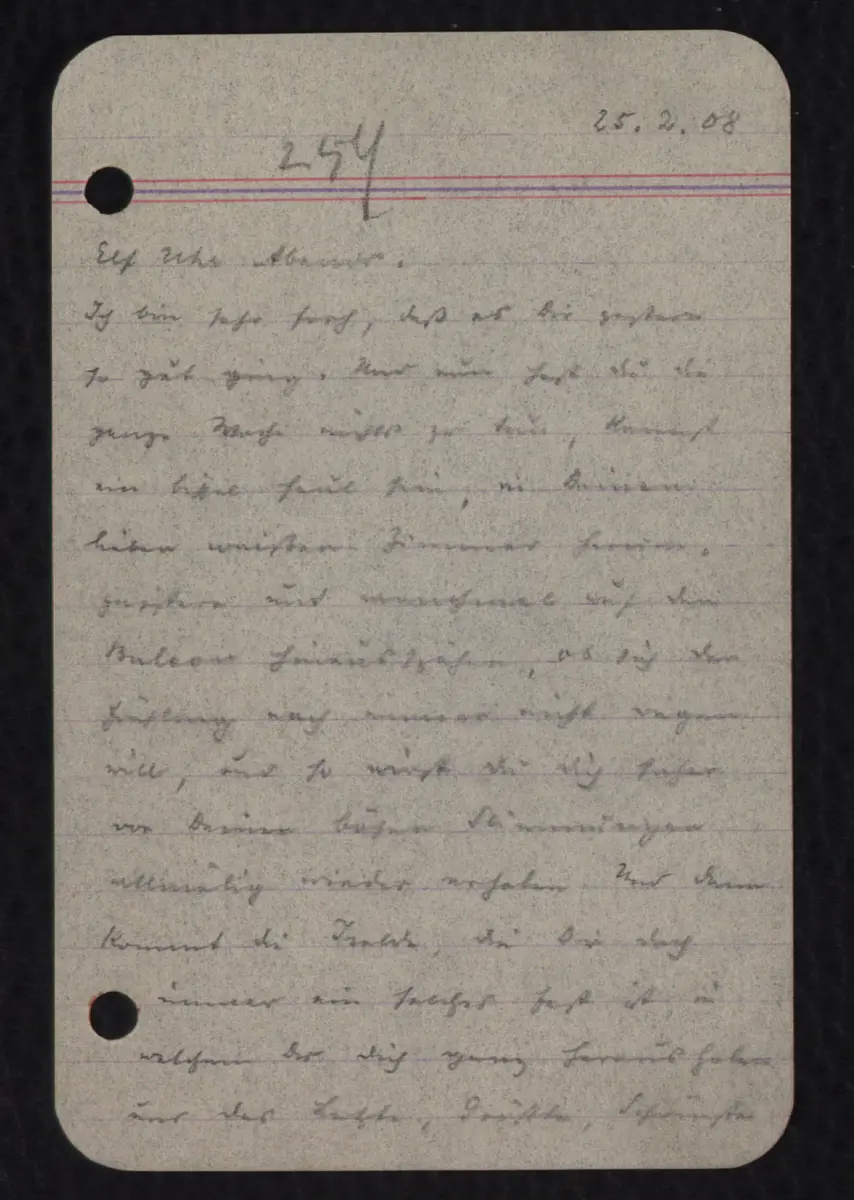 25. 2. 08
254
Elf Uhr Abends.
Ich bin sehr froh, daß es Dir gestern
so gut ging. Und nun hast du die
ganze Woche nichts zu tun, kannst
ein bißel faul sein, in Deinem
lieben weißen Zimmer herum-
geistern und manchmal auf den
Balcon hinausspähen, ob sich der
Frühling noch immer nicht regen
will, und so wirst du dich sicher
von Deinen bösen Stimmungen
allmälig wieder erholen. Und dann
kommt die Isolde, die Dir doch
immer ein solches Fest ist, in
welchem Du dich ganz herausheben
und das Letzte, Größte, Schönste